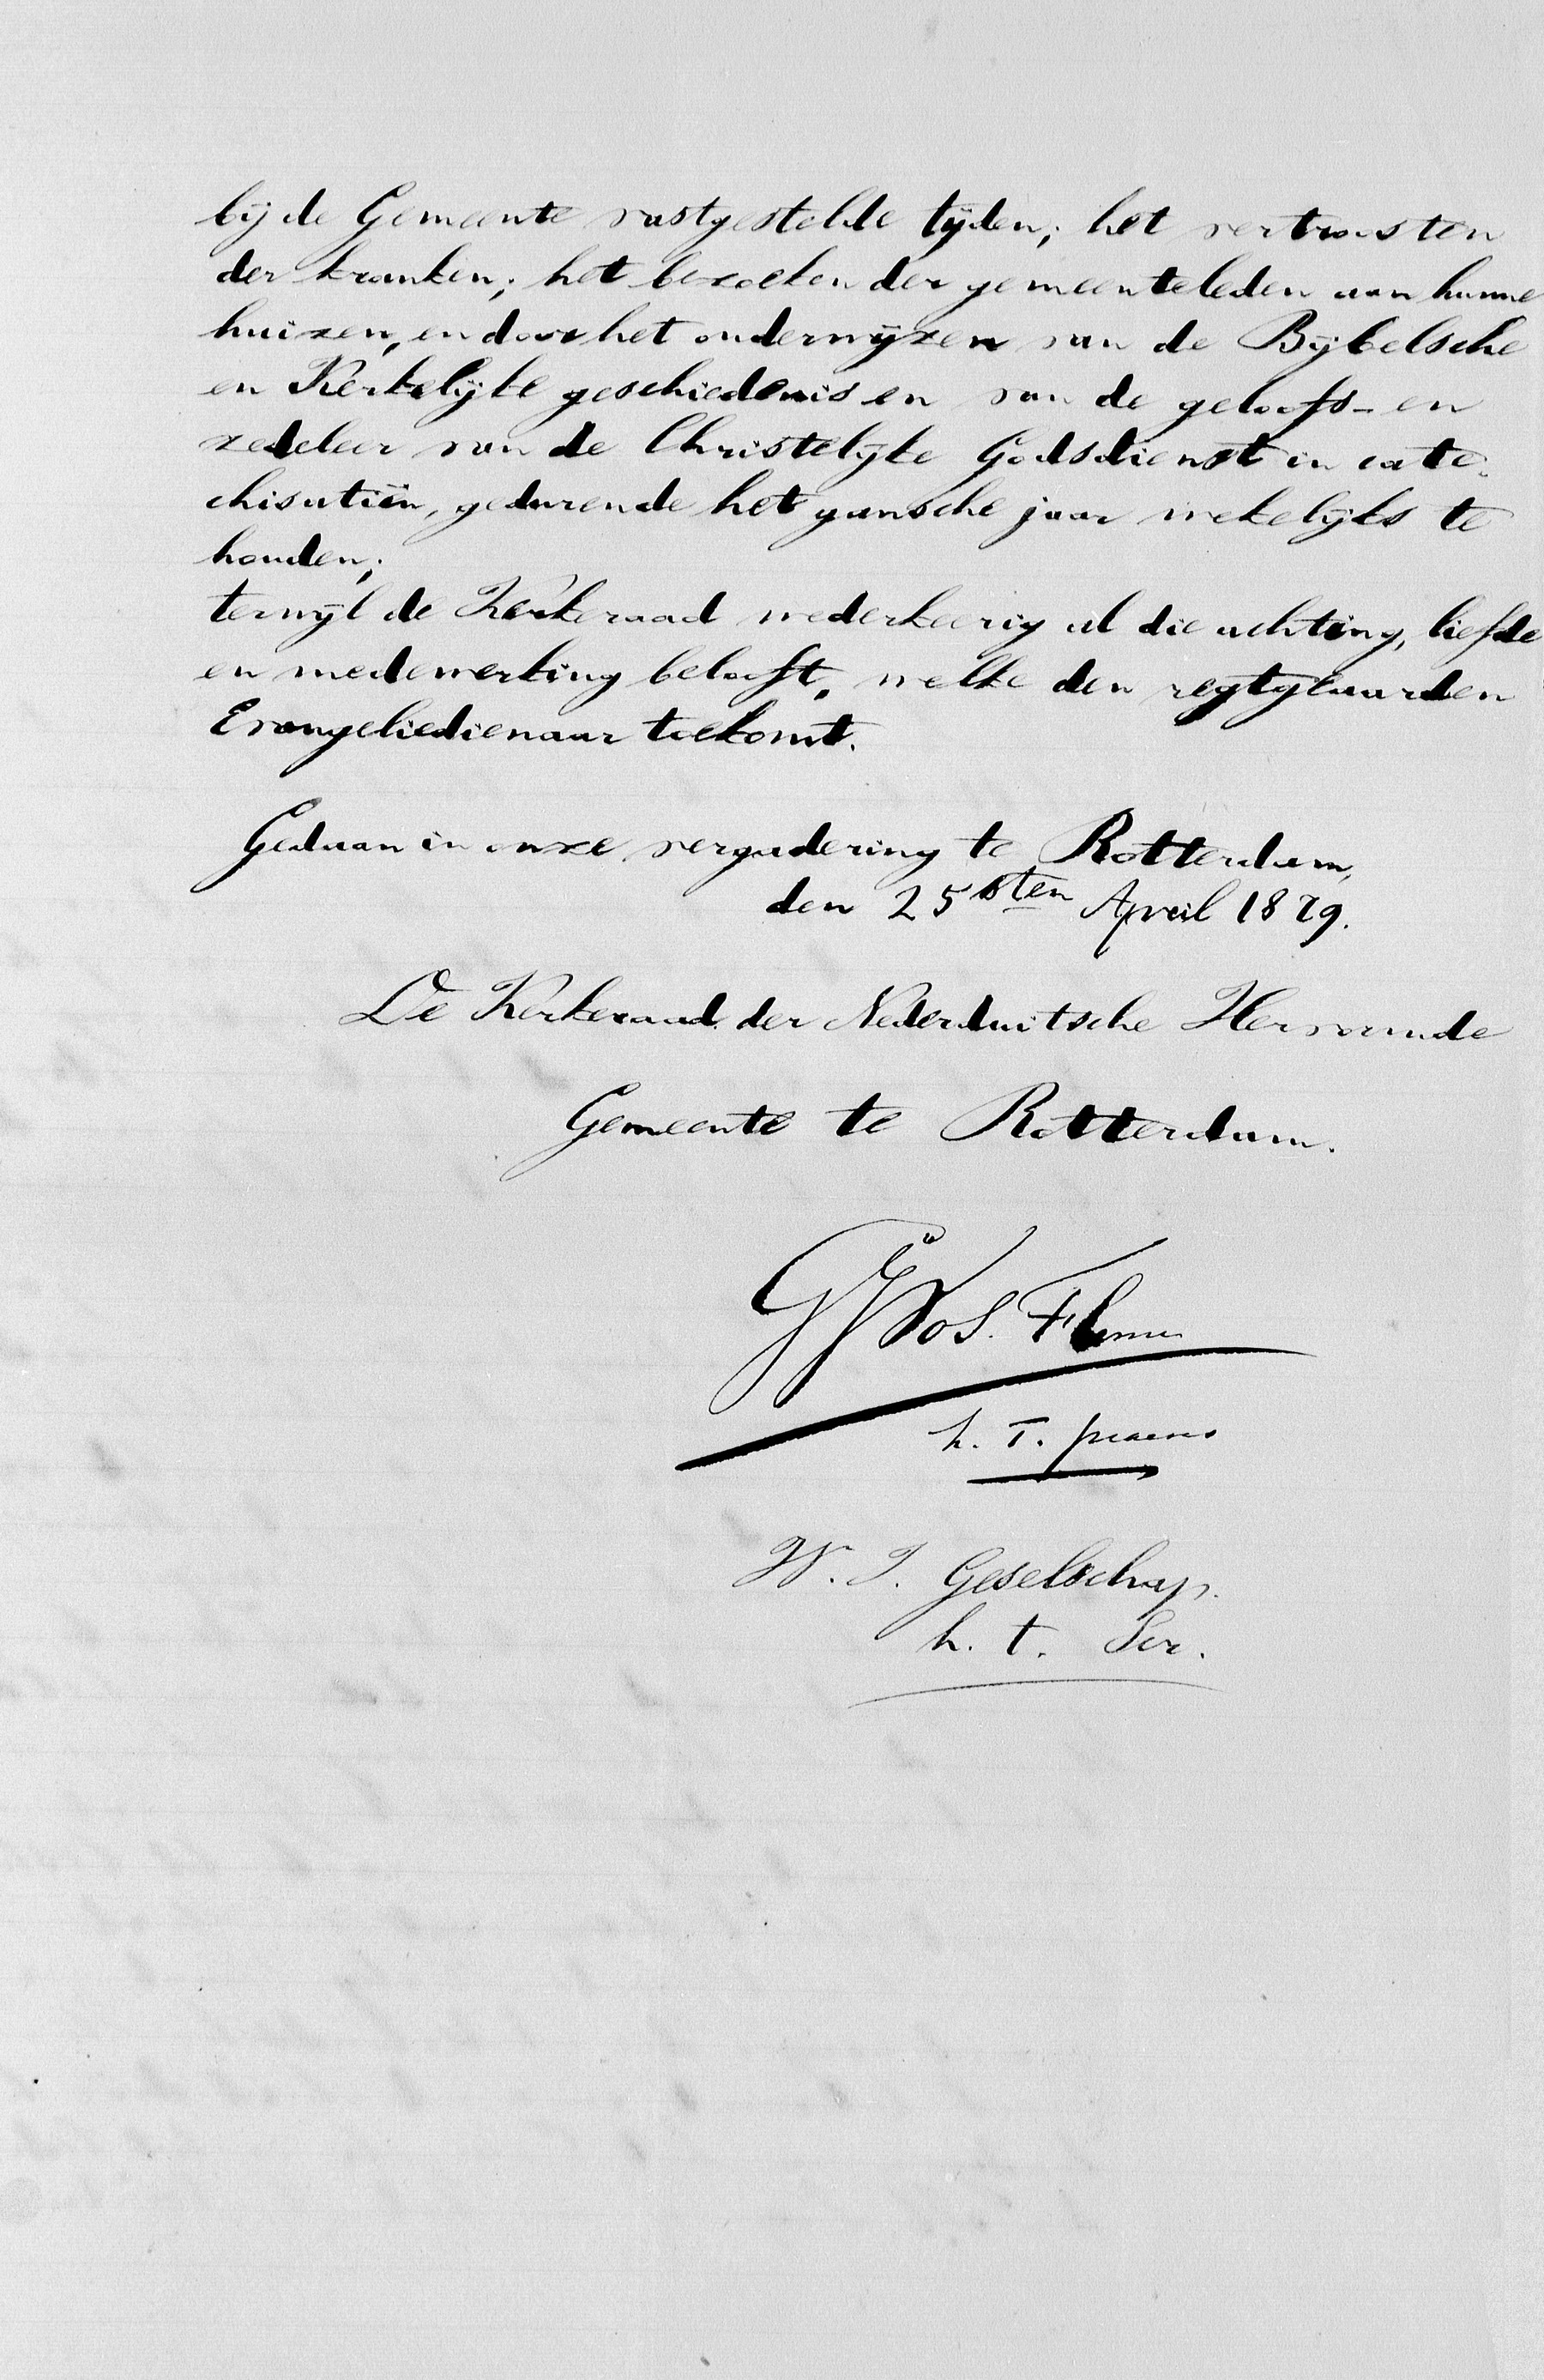 bij de Gemeente vastgestelde tijden; het vertroosten
der kranken; het bezoeken der gemeenteleden aan hunne
huizen, en door het onderwijzen van de Bijbelsche
en Kerkelijke geschiedenis en van de geloofs- en
zedeleer van de Christelijke Godsdienst in cate-
chisatiën, gedurende het gansche jaar wekelijks te
houden;
terwijl de Kerkeraad wederkeerig al die achting, liefde
en medewerking belooft, welke den regtgeaarden
Evangeliedienaar toekomt.
Gedaan in onze vergadering te Rotterdam,
den 25sten April 1879.
De Kerkeraad der Nederduitsche Hervormde
Gemeente te Rotterdam.
G J Vos
h. T. praeses
W. J. Geselschap.
h. t. Scr.